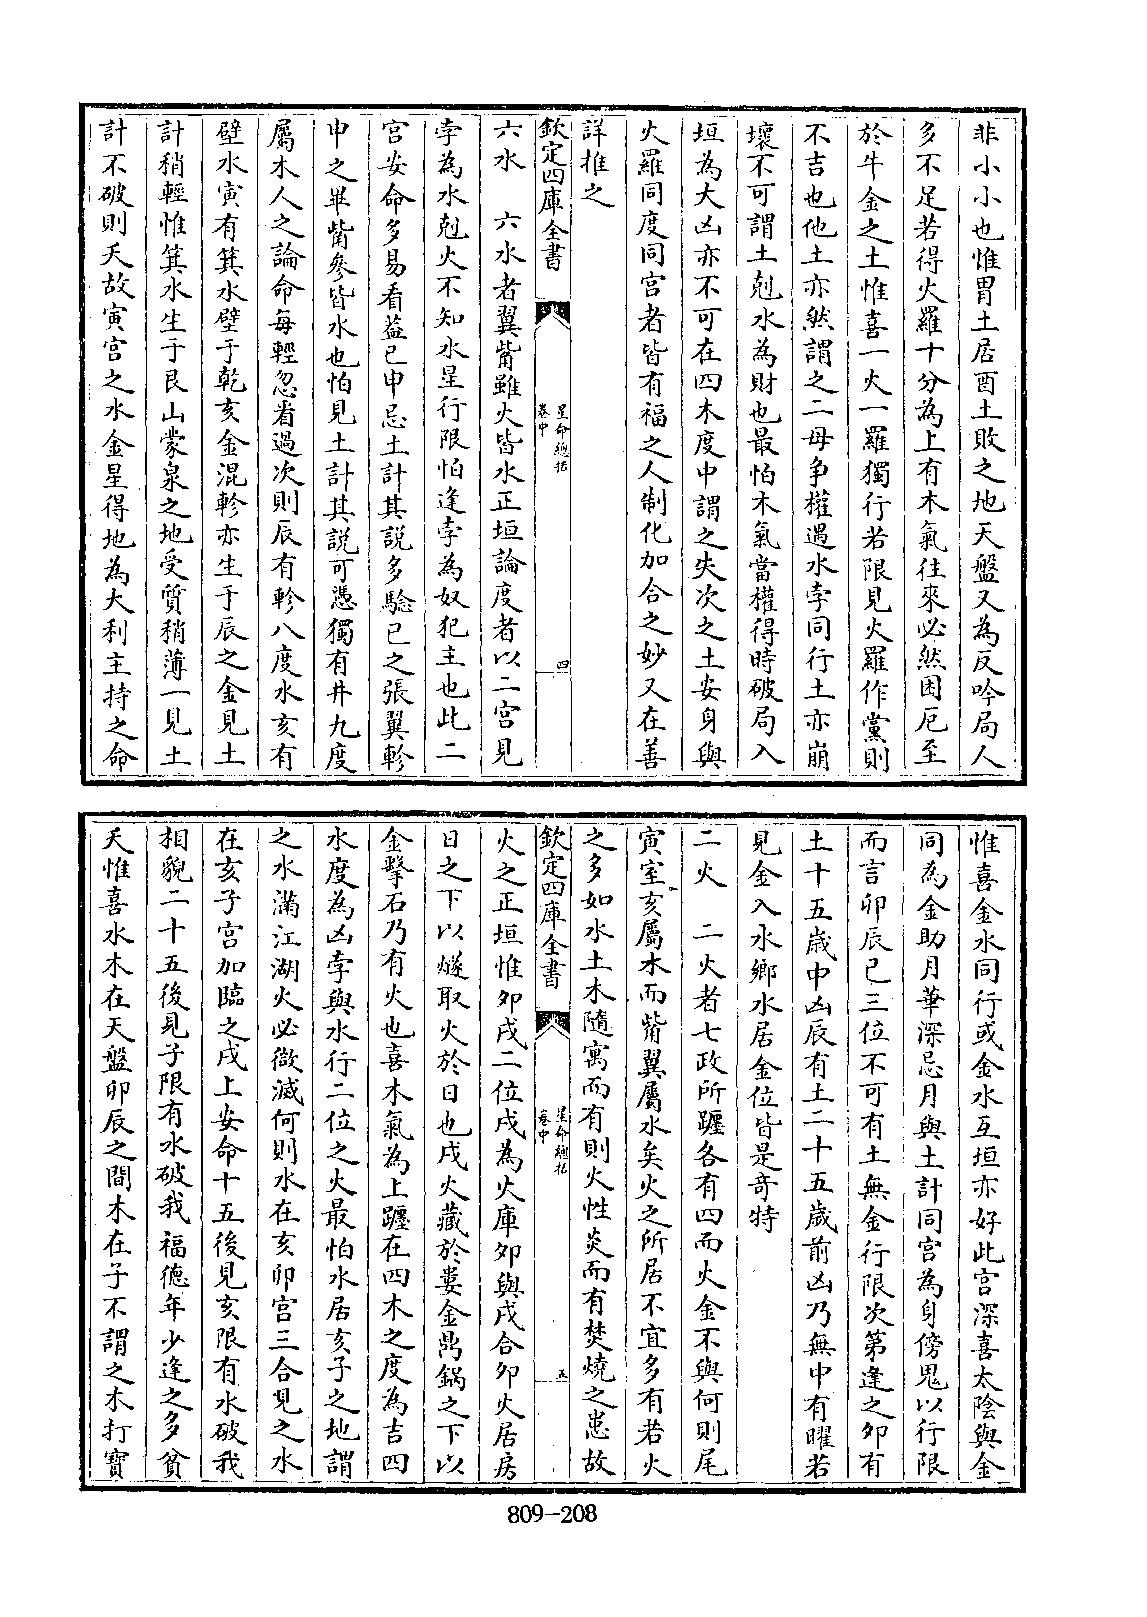 非小小也惟胃土居酉土敗之地天盤又為反吟局人
多不足若得火羅十分為上有木氣往來必然困厄至
於牛金之土惟喜一火一羅獨行若限見火羅作黨則
不吉也他土亦然謂之二母争權遇水孛同行土亦崩
壞不可謂土剋水為財也最怕木氣當權得時破局入
垣為大凶亦不可在四木度中謂之失次之土安身與
火羅同度同宫者皆有福之人制化加合之妙又在善
詳推之
欽定四庫全書
星命總括
卷中
四
六水　六水者翼觜雖火皆水正垣論度者以二宫見
孛為水剋火不知水星行限怕逢孛為奴犯主也此二
宫安命多易看葢已申忌土計其説多驗已之張翼軫
申之畢觜參皆水也怕見土計其説可憑獨有井九度
屬木人之論命每輕忽看過次則辰有軫八度水亥有
壁水寅有箕水壁于乾亥金混軫亦生于辰之金見土
計稍輕惟箕水生于艮山蒙泉之地受質稍薄一見土
計不破則夭故寅宫之水金星得地為大利主持之命
惟喜金水同行或金水互垣亦好此宫深喜太陰與金
同為金助月華深忌月與土計同宫為身傍鬼以行限
而言卯辰巳三位不可有土無金行限次第逢之卯有
土十五歲中凶辰有土二十五歲前凶乃無中有曜若
見金入水鄉水居金位皆是竒特
二火　二火者七政所躔各有四而火金不與何則尾
寅室亥屬木而觜翼屬水矣火之所居不宜多有若火
之多如水土木隨寓而有則火性炎而有焚燒之患故
欽定四庫全書
星命總括
卷中
五
火之正垣惟卯戌二位戌為火庫卯與戌合卯火居房
日之下以燧取火於日也戌火藏於婁金鬲鍋之下以
金擊石乃有火也喜木氣為上躔在四木之度為吉四
水度為凶孛與水行二位之火最怕水居亥子之地謂
之水滿江湖火必微滅何則水在亥卯宫三合見之水
在亥子宫加臨之戌上安命十五後見亥限有水破我
相貌二十五後見子限有水破我福德年少逢之多貧
夭惟喜水木在天盤卯辰之間木在子不謂之木打寳
809-208